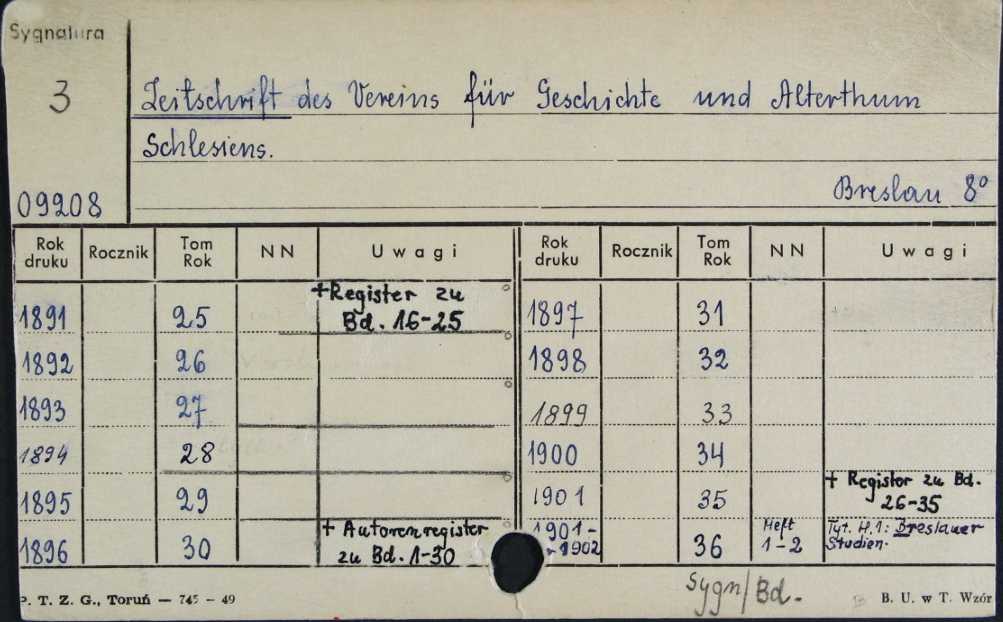 Sygnatura
3
09208
Zeitschrift des Vereins für Geschichte und Alterthum
Schlesiens.
Breslau 8°
Rok druku Rocznik Tom Rok NN Uwagi Rok druku Rocznik Tom Rok NN Uwagi
1891 25 +Register zu Bd. 16-25 1897 31
1892 26 1898 32
1893 27 1899 33
1894 28 1900 34
1895 29 1901 35 + Register zu Bd. 26-35
1896 30 + Autorenregister zu Bd. 1-30 1901-1902 36 Heft 1-2 Tyt. H.1: Breslauer Studien.
P. T. Z. G., Toruń — 745 - 49
Sygn/Bd.-
B. U. w T. Wzór